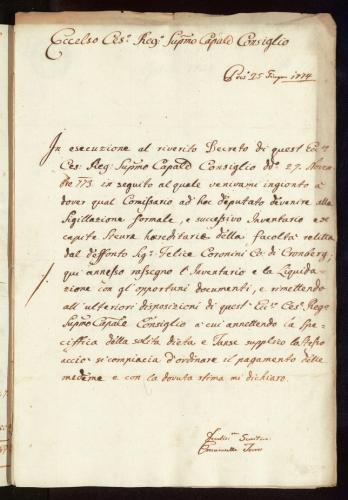 Eccelso Ces.º Reg.º Supmo Capale Consiglio
25 Giugno 1774
In esecuzione al riverito Decreto di quest Ecc.º
Ces. Reg. Supmo Capale Consiglio dd.º 27. Novem
bre 773 in seguito al quale venivami ingionto a
dover qual Comissario ad hoc deputato devenire alla
Sigillazione formale, e successivo Inventario e se
capite Steura hæreditaria della facoltà relitta
dal deffonto Sig.r Felice Coronini Co: di Cronberg;
qui annesso rassegno l'Inventario e la Liquida
zione con gl'opportuni documenti, e rimettendo
all'ulteriori disposizioni di quest' Ecc.º Ces.º Reg.º
Supmo Capale Consiglio a cui annettendo la Spe
ciffica della solita dieta e Tanse supplico la stesso
acciò si compiaccia d'ordinare il pagamento delle
medeme e con la dovuta stima mi dichiaro.
Emanuelle